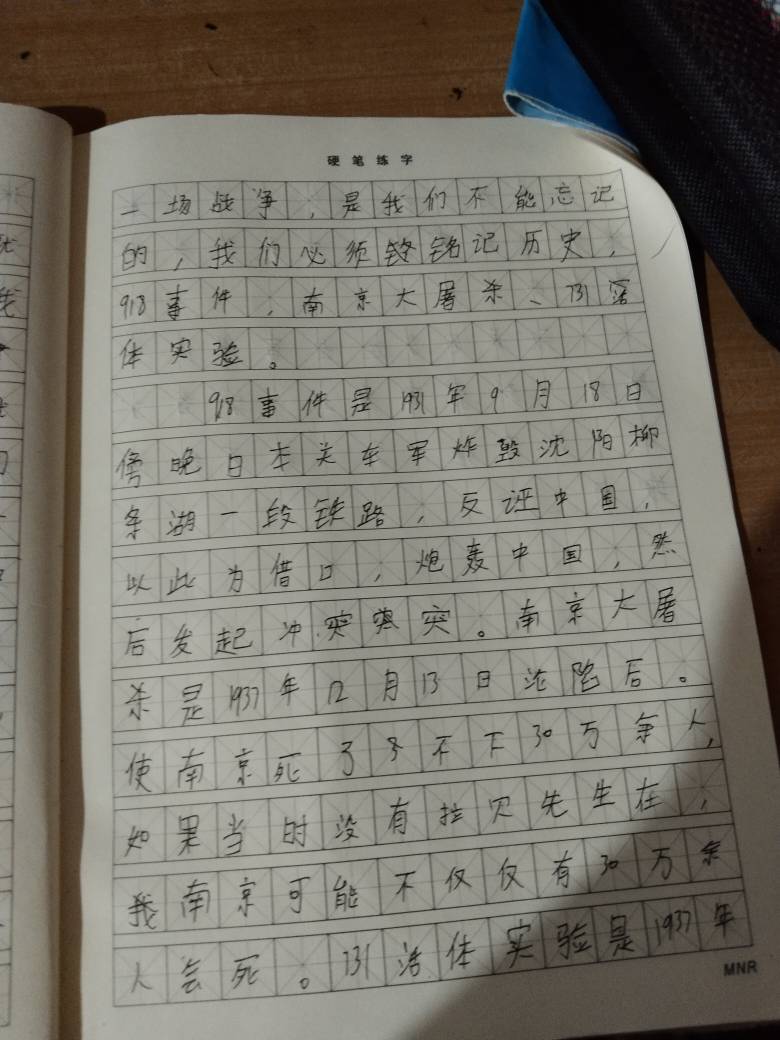 硬笔练字
一场战争，是我们不能忘记
的，我们必须铭记历史，
918事件，南京大屠杀、731活
体实验。
918事件是1931年9月18日
傍晚日本关车军炸毁沈阳柳
条湖一段铁路，反诬中国，
以此为借口，炮轰中国，然
后发起冲突突突。南京大屠
杀是1937年12月13日沦陷后。
使南京死了多不下30万余人，
如果当时没有拉贝先生在，
我南京可能不仅仅有30万余
人会死。731活体实验是1937年
MNR